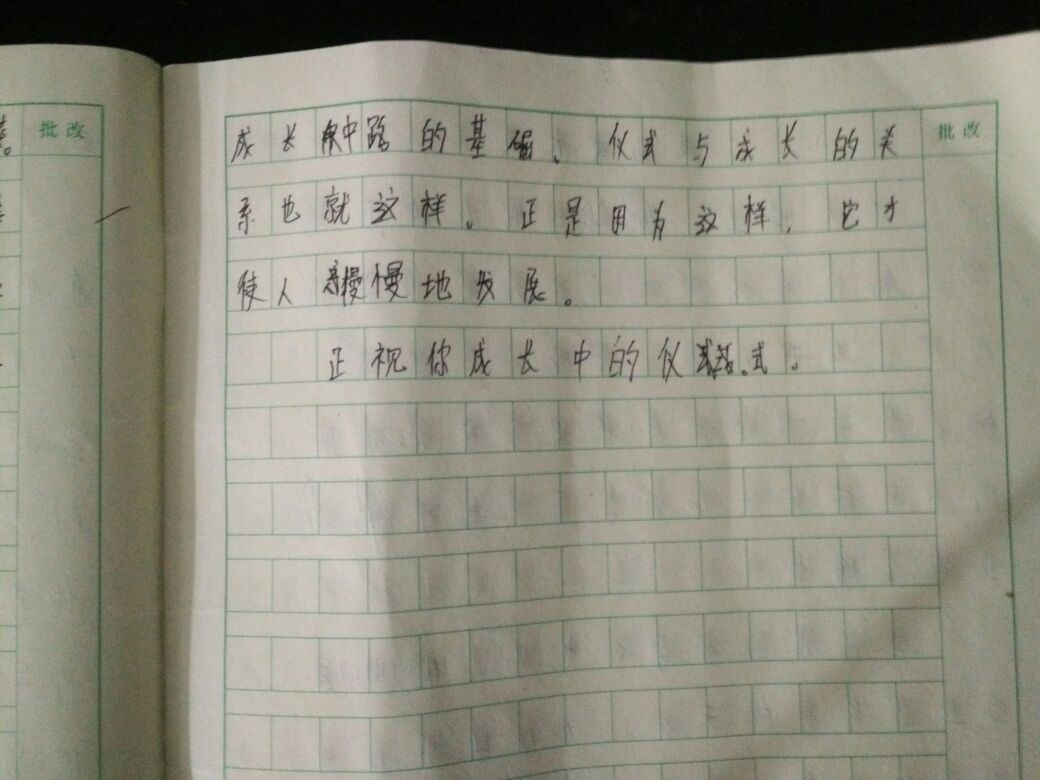 批改
成长中路的基础。仪式与成长的关
批改
系也就这样。正是因为这样，它才
使人慢慢地发展。
正视你成长中的仪式。